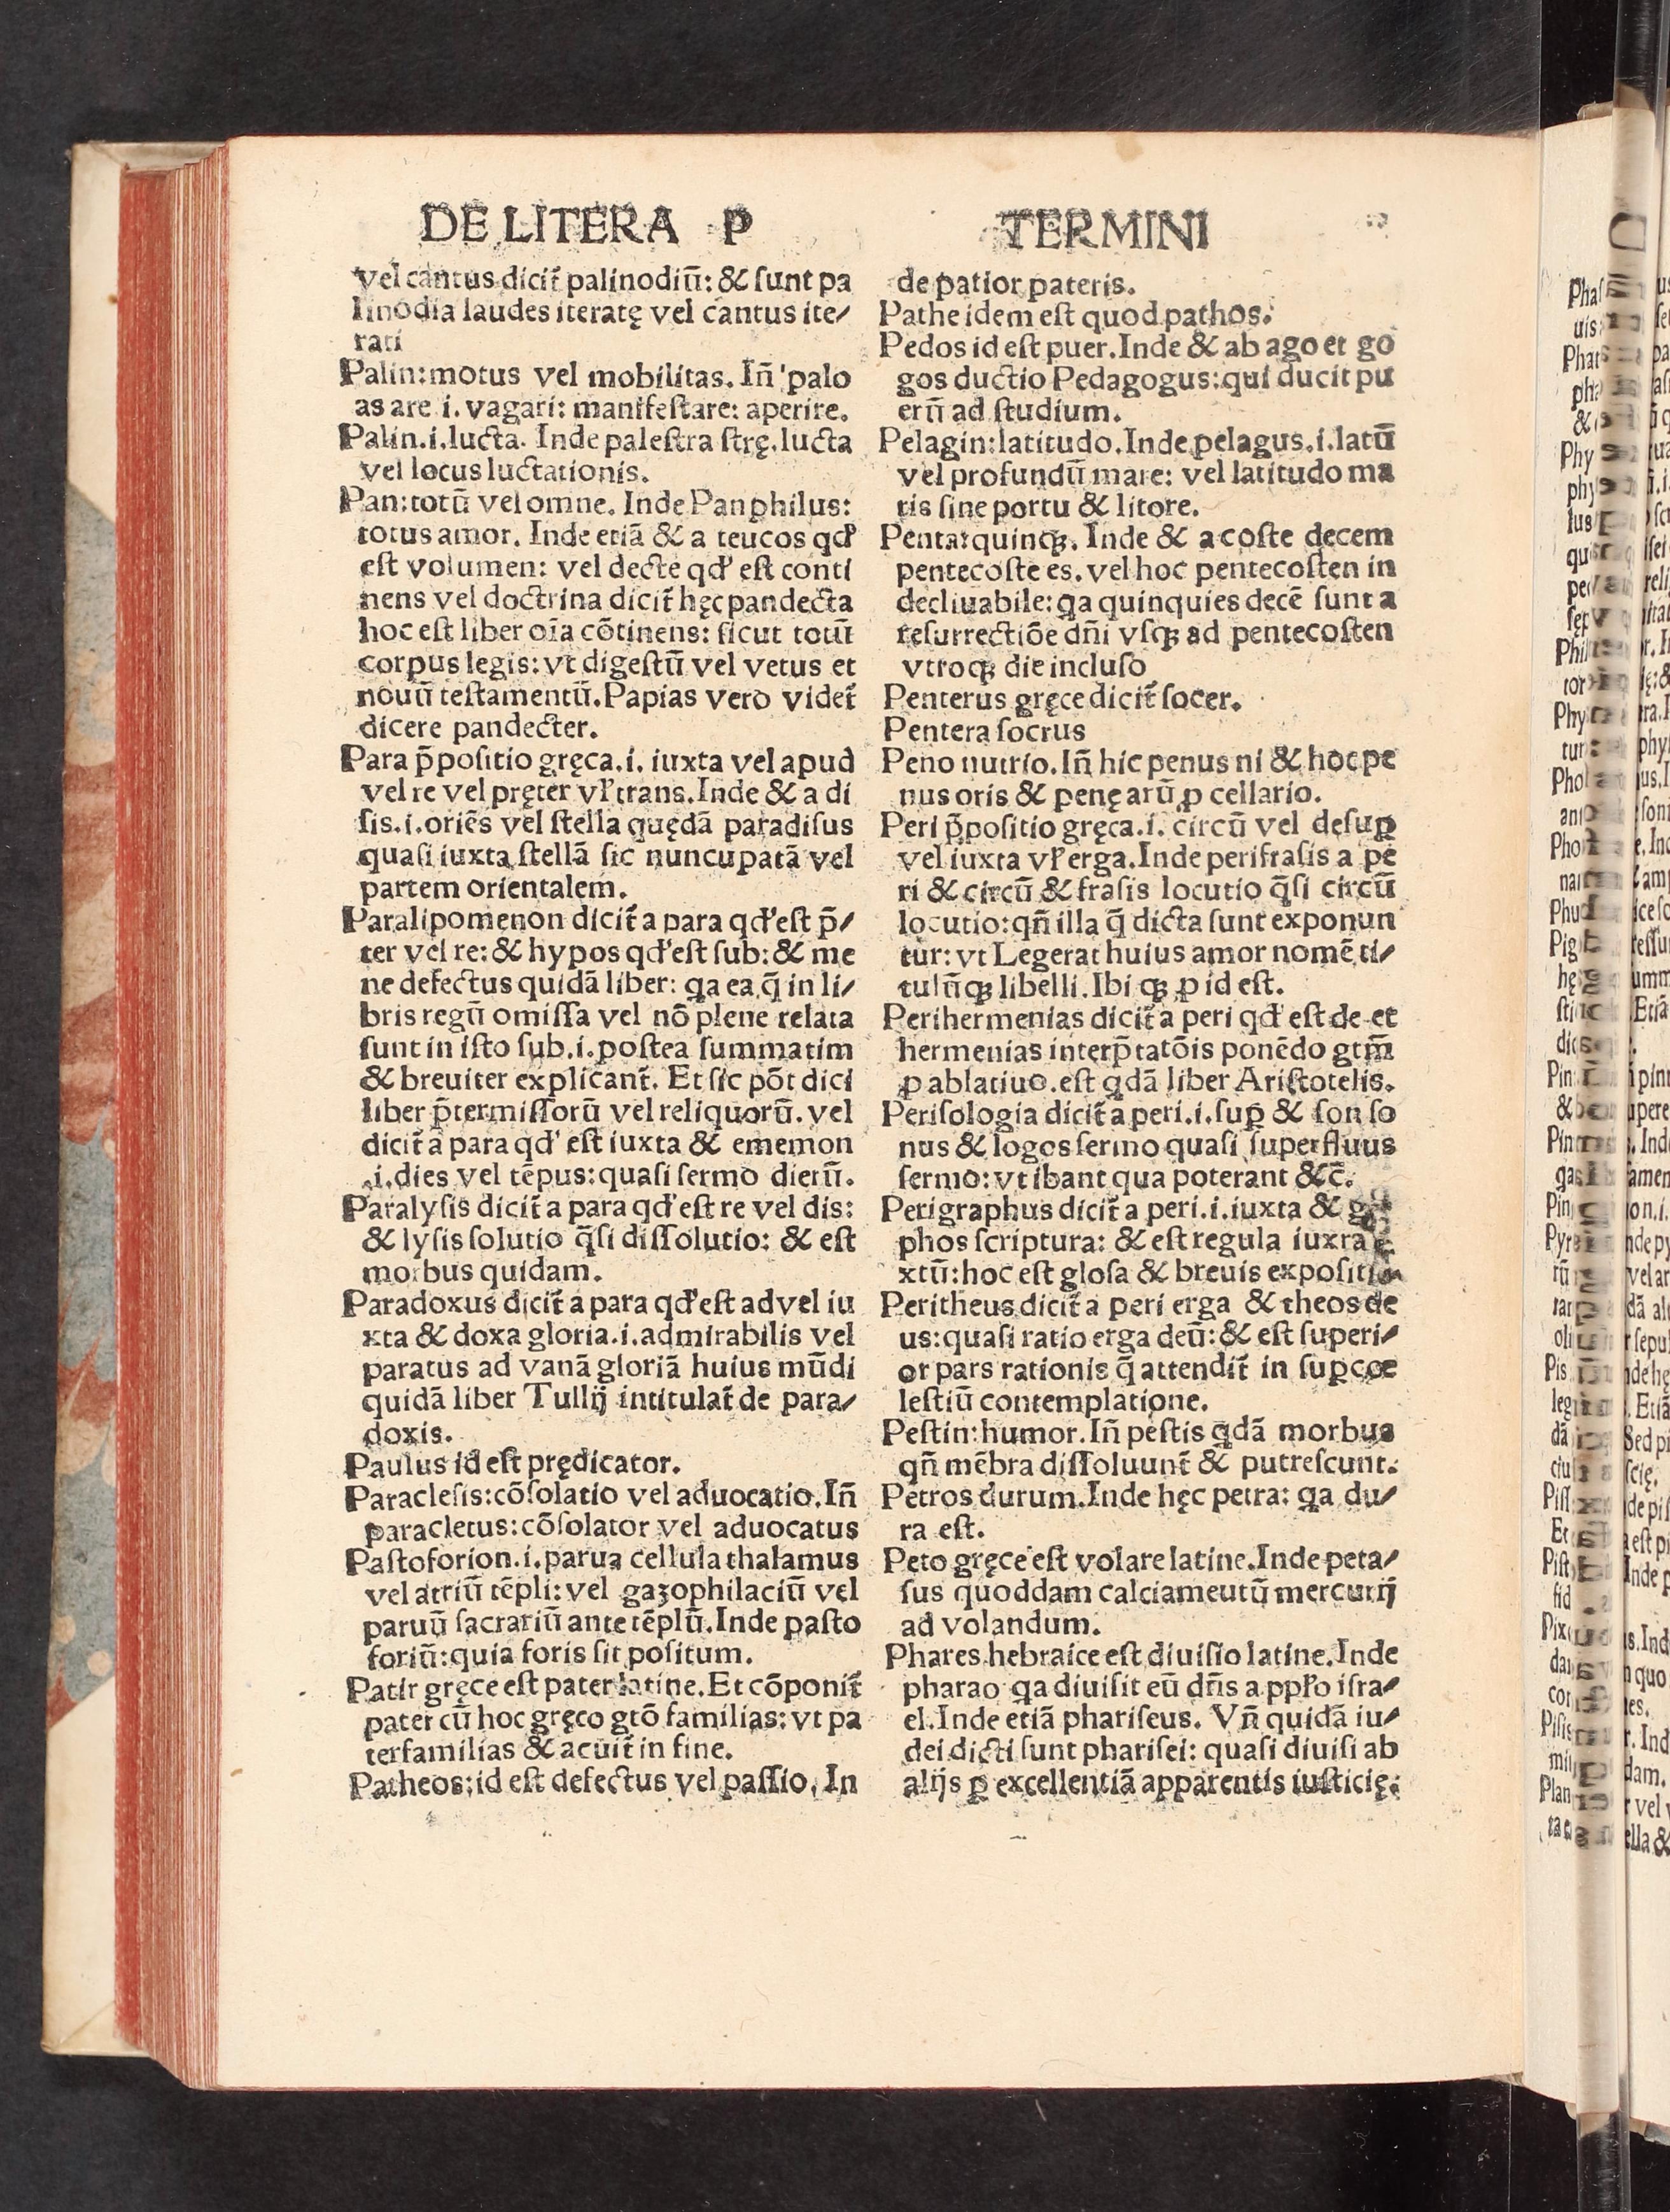 DE LITERA P
vel cantus dicit̃ palinodiū: & ſunt pa
linodia laudes iteratę vel cantus ite/
rati
Palin: motus vel mobilitas. Iñ palo
as are .i. vagari: manifeſtare: aperire.
Palin .i. lucta. Inde paleſtra ſtrę. lucta
vel locus luctationis.
Pan: totū vel omne. Inde Panphilus:
totus amor. Inde etiā & a teucos qđ
eſt volumen: vel decte qđ eſt conti
nens vel doctrina dicit̃ hęc pandecta
hoc eſt liber oīa cōtinens: ſicut totū
corpus legis: vt digeſtū vel vetus et
nouū teſtamentū. Papias vero videt̃
dicere pandecter.
Para p̄poſitio gręca .i. iuxta vel apud
vel re vel pręter vľ trans. Inde & a di
ſis .i. oriēs vel ſtella quędā paradiſus
quaſi iuxta ſtellā ſic nuncupatā vel
partem orientalem.
Paralipomenon dicit̃ a para qđ eſt p̄/
ter vel re: & hypos qđ eſt ſub: & me
ne defectus quidā liber: ꝗa ea q̄ in li/
bris regū omiſſa vel nō plene relata
ſunt in iſto ſub .i. poſtea ſummatim
& breuiter explicant̃. Et ſic pōt dici
liber p̄termiſſorū vel reliquorū. vel
dicit̃ a para qđ eſt iuxta & ememon
.i. dies vel tēpus: quaſi ſermo dierū.
Paralyſis dicit̃ a para qđ eſt re vel dis:
& lyſis ſolutio q̄ſi diſſolutio: & eſt
morbus quidam.
Paradoxus dicit̃ a para qđ eſt ad vel iu
xta & doxa gloria .i. admirabilis vel
paratus ad vanā gloriā huius mūdi
quidā liber Tullij intitulat̃ de para/
doxis.
Paulus id eſt prędicator.
Paracleſis: cōſolatio vel aduocatio. Iñ
paracletus: cōſolator vel aduocatus
Paſtoforion .i. parua cellula thalamus
vel atriū tēpli: vel gazophilaciū vel
paruū ſacrariū ante tēplū. Inde paſto
foriū: quia foris ſit poſitum.
Patir gręce eſt pater latine. Et cōponit̃
pater cū hoc gręco gtō familias: vt pa
terfamilias & acuit̃ in fine.
Patheos: id eſt defectus vel paſſio. In
TERMINI
de patior pateris.
Pathe idem eſt quod pathos.
Pedos id eſt puer. Inde & ab ago et go
gos ductio Pedagogus: qui ducit pu
erū ad ſtudium.
Pelagin: latitudo. Inde pelagus .i. latū
vel profundū mare: vel latitudo ma
ris ſine portu & litore.
Penta: quinqꝫ. Inde & a coſte decem
pentecoſte es. vel hoc pentecoſten in
decliuabile: ꝗa quinquies decē ſunt a
reſurrectiōe dñi vſqꝫ ad pentecoſten
vtroqꝫ die incluſo
Penterus gręce dicit̃ ſocer.
Pentera ſocrus
Peno nutrio. Iñ hic penus ni & hoc pe
nus oris & penę arū ꝓ cellario.
Peri p̄poſitio gręca .i. circū vel deſuꝑ
vel iuxta vľ erga. Inde perifraſis a pe
ri & circū & fraſis locutio q̄ſi circū
locutio: qñ illa q̄ dicta ſunt exponun
tur: vt Legerat huius amor nomē ti/
tulūqꝫ libelli. Ibi qꝫ ꝓ id eſt.
Perihermenias dicit̃ a peri qđ eſt de et
hermenias interp̄tatōis ponēdo gtm̄
ꝓ ablatiuo. eſt ꝗdā liber Ariſtotelis.
Periſologia dicit̃ a peri .i. ſuꝑ & ſon ſo
nus & logos ſermo quaſi ſuperfluus
ſermo: vt ibant qua poterant &c̄.
Perigraphus dicit̃ a peri .i. iuxta &
phos ſcriptura: & eſt regula iuxta
xtū: hoc eſt gloſa & breuis expoſitio
Peritheus dicit̃ a peri erga & theos de
us: quaſi ratio erga deū: & eſt ſuperi/
or pars rationis q̄ attendit̃ in ſuꝑcoe
leſtiū contemplatione.
Peſtin: humor. Iñ peſtis ꝗdā morbus
qñ mēbra diſſoluunt̃ & putreſcunt.
Petros durum. Inde hęc petra: ꝗa du/
ra eſt.
Peto gręce eſt volare latine. Inde peta/
ſus quoddam calciameutū mercurij
ad volandum.
Phares hebraice eſt diuiſio latine. Inde
pharao ꝗa diuiſit eū dñs a ppľo iſra/
el. Inde etiā phariſeus. Vñ quidā iu/
dei dicti ſunt phariſei: quaſi diuiſi ab
alijs ꝑ excellentiā apparentis iuſticię: